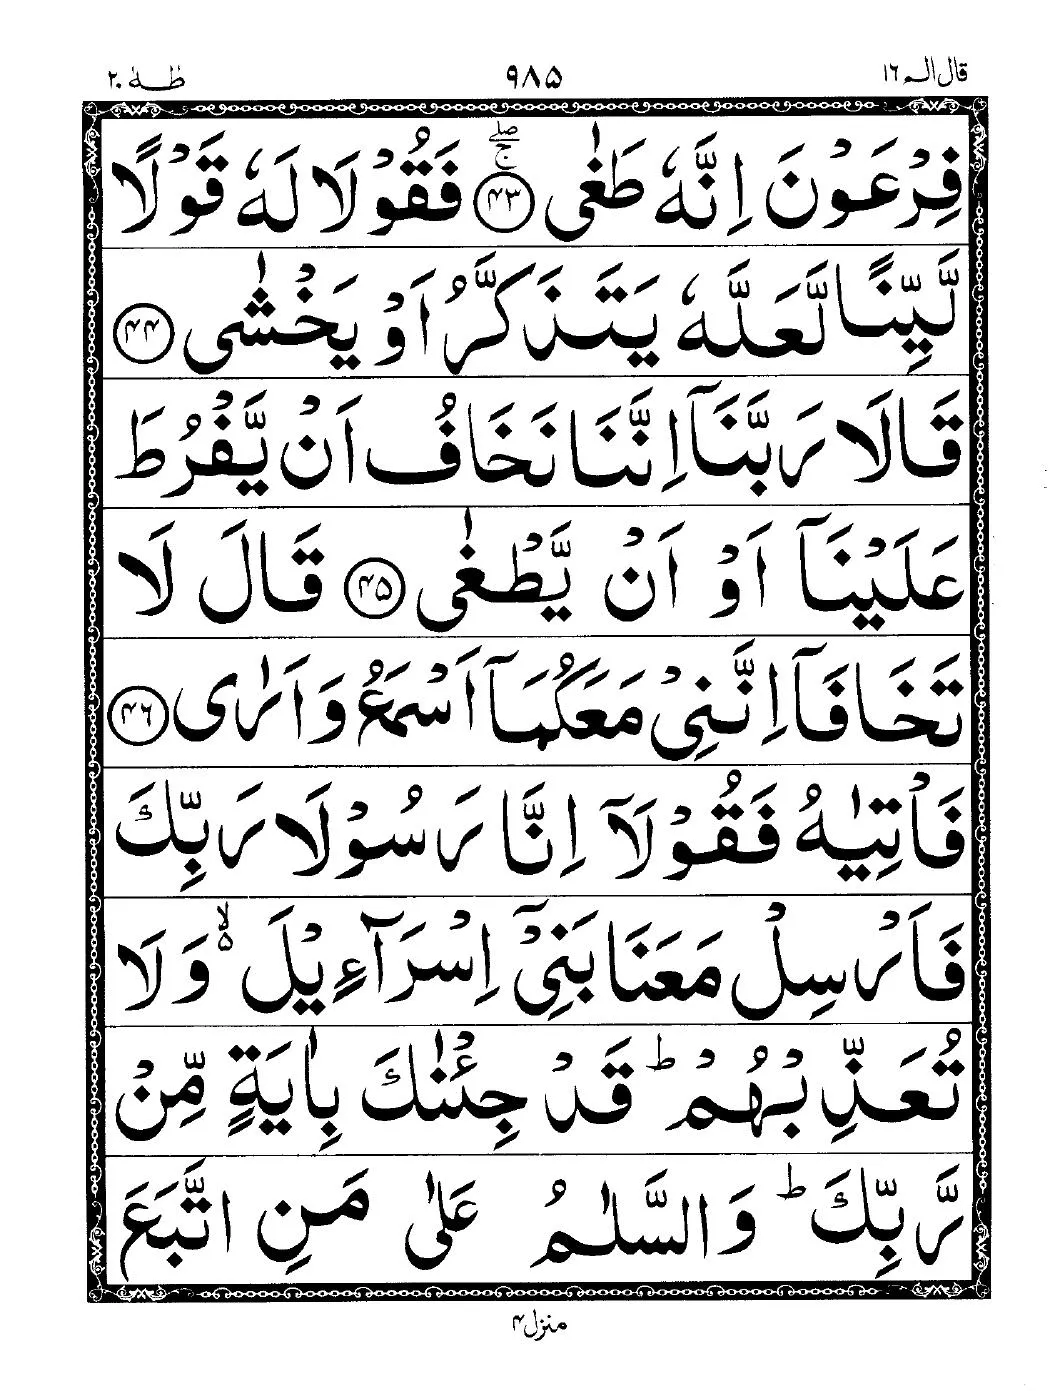 قال الم ١٦
٩٨٥
طٰهٰ ٢٠
فِرْعَوْنَ اِنَّهٗ طَغٰى ۖۚ ﴿۴۳﴾ فَقُوْلَا لَهٗ قَوْلًا
لَّيِّنًا لَّعَلَّهٗ يَتَذَكَّرُ اَوْ يَخْشٰى ﴿۴۴﴾
قَالَا رَبَّنَآ اِنَّنَا نَخَافُ اَنْ يَّفْرُطَ
عَلَيْنَآ اَوْ اَنْ يَّطْغٰى ﴿۴۵﴾ قَالَ لَا
تَخَافَآ اِنَّنِيْ مَعَكُمَآ اَسْمَعُ وَاَرٰى ﴿۴۶﴾
فَاْتِيٰهُ فَقُوْلَآ اِنَّا رَسُوْلَا رَبِّكَ
فَاَرْسِلْ مَعَنَا بَنِيْٓ اِسْرَآءِيْلَ ۙ۵ وَلَا
تُعَذِّبْهُمْ ؕ قَدْ جِئْنٰكَ بِاٰيَةٍ مِّنْ
رَّبِّكَ ؕ وَالسَّلٰمُ عَلٰى مَنِ اتَّبَعَ
منزل ۴